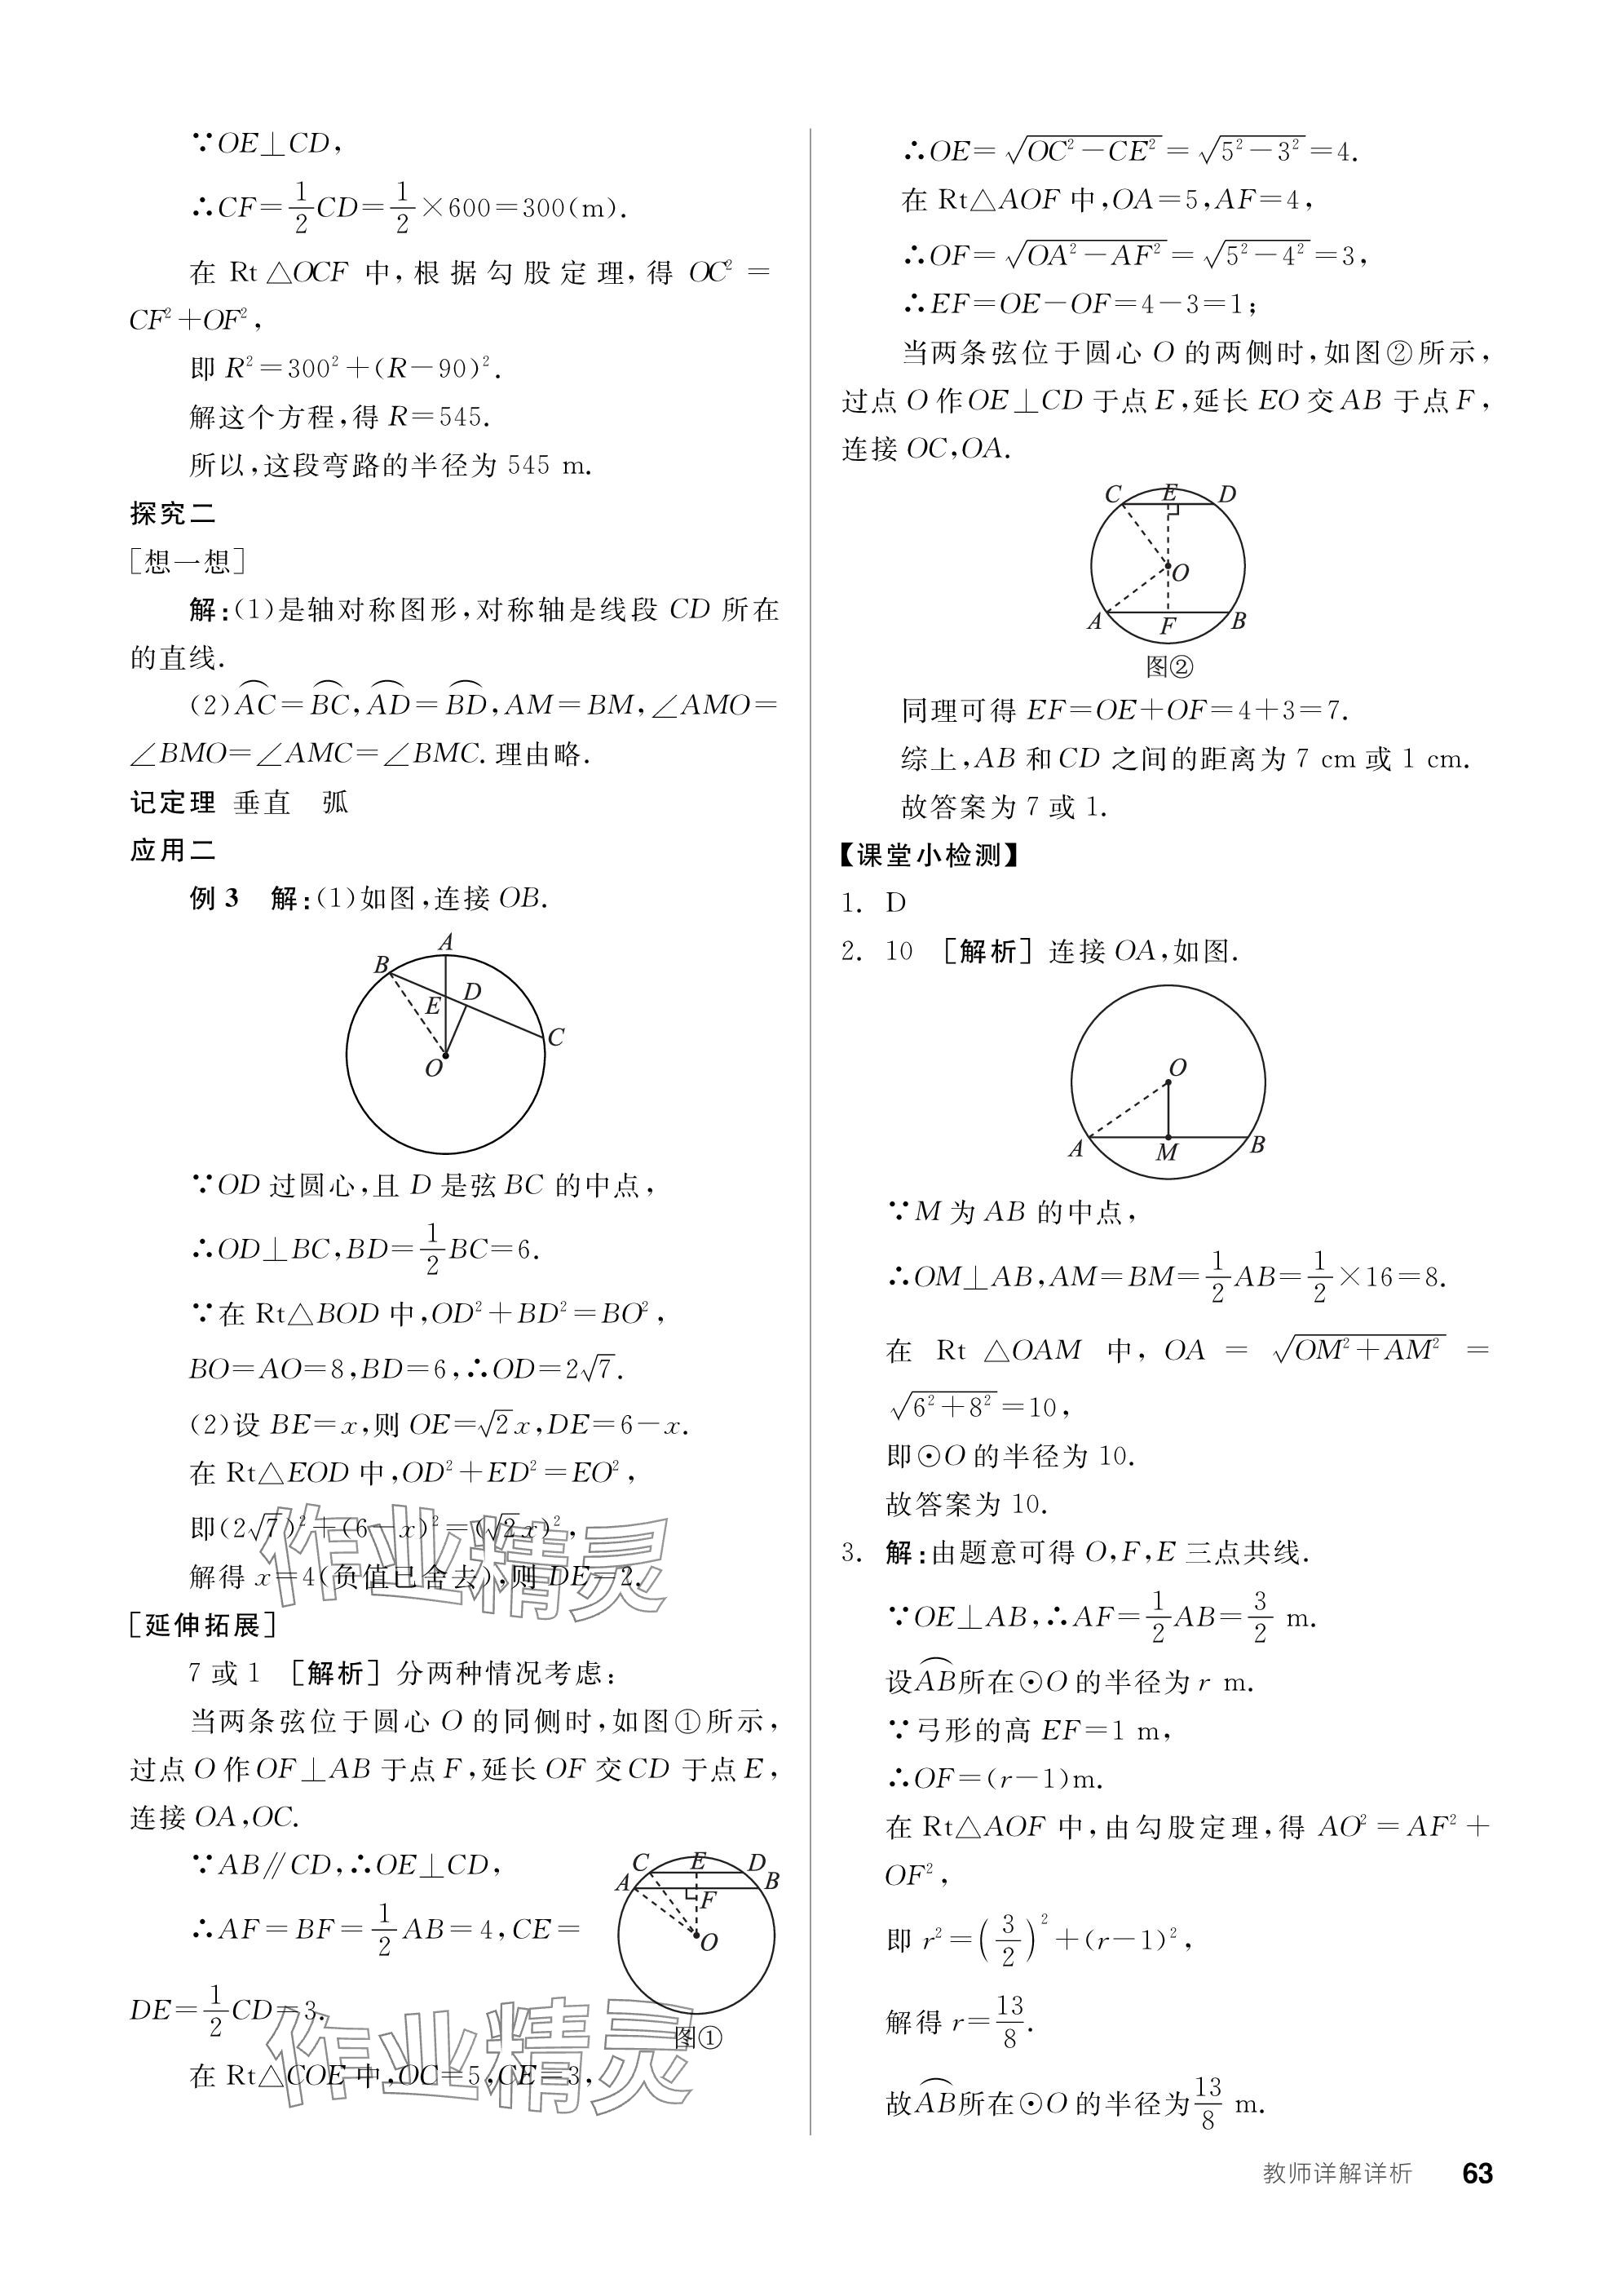 ∵OE⊥CD,
∴CF=1/2CD=1/2×600=300(m).
在 Rt△OCF 中,根据勾股定理,得 OC²=
CF²+OF²,
即 R²=300²+(R-90)².
解这个方程,得 R=545.
所以,这段弯路的半径为 545 m.
探究二
[想一想]
解:(1)是轴对称图形,对称轴是线段 CD 所在
的直线.
(2)⌒AC=⌒BC,⌒AD=⌒BD,AM=BM,∠AMO=
∠BMO=∠AMC=∠BMC.理由略.
记定理 垂直 弧
应用二
例 3 解:(1)如图,连接 OB.
A
B
E
D
C
O
∵OD 过圆心,且 D 是弦 BC 的中点,
∴OD⊥BC,BD=1/2BC=6.
∵在 Rt△BOD 中,OD²+BD²=BO²,
BO=AO=8,BD=6,∴OD=2√7.
(2)设 BE=x,则 OE=√2x,DE=6-x.
在 Rt△EOD 中,OD²+ED²=EO²,
即(2√7)²+(6-x)²=(√2x)²,
解得 x=4(负值已舍去),则 DE=2.
作业精灵
[延伸拓展]
7 或 1 [解析] 分两种情况考虑:
当两条弦位于圆心 O 的同侧时,如图①所示,
过点 O 作 OF⊥AB 于点 F,延长 OF 交 CD 于点 E,
连接 OA,OC.
∵AB∥CD,∴OE⊥CD,
∴AF=BF=1/2AB=4,CE=
DE=1/2CD=3.
C E D
A B
F
O
图①
在 Rt△COE 中,OC=5,CE=3,
作业精灵
∴OE=√(OC²-CE²)=√(5²-3²)=4.
在 Rt△AOF 中,OA=5,AF=4,
∴OF=√(OA²-AF²)=√(5²-4²)=3,
∴EF=OE-OF=4-3=1;
当两条弦位于圆心 O 的两侧时,如图②所示,
过点 O 作 OE⊥CD 于点 E,延长 EO 交 AB 于点 F,
连接 OC,OA.
C E D
O
A F B
图②
同理可得 EF=OE+OF=4+3=7.
综上,AB 和 CD 之间的距离为 7 cm 或 1 cm.
故答案为 7 或 1.
【课堂小检测】
1. D
2. 10 [解析] 连接 OA,如图.
O
A M B
∵M 为 AB 的中点,
∴OM⊥AB,AM=BM=1/2AB=1/2×16=8.
在 Rt △OAM 中, OA = √(OM²+AM²) =
√(6²+8²)=10,
即⊙O 的半径为 10.
故答案为 10.
3. 解:由题意可得 O,F,E 三点共线.
∵OE⊥AB,∴AF=1/2AB=3/2 m.
设⌒AB所在⊙O 的半径为 r m.
∵弓形的高 EF=1 m,
∴OF=(r-1)m.
在 Rt△AOF 中,由勾股定理,得 AO²=AF²+
OF²,
即 r²=(3/2)²+(r-1)²,
解得 r=13/8.
故⌒AB所在⊙O 的半径为13/8 m.
教师详解详析 63